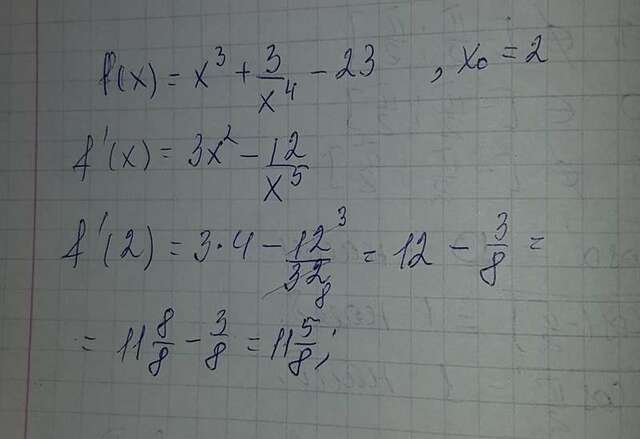 f(x) = x³ + 3/x⁴ - 23 , x₀ = 2
f'(x) = 3x² - 12/x⁵
f'(2) = 3·4 - 12³/32₈ = 12 - 3/8 =
= 11 8/8 - 3/8 = 11 5/8;